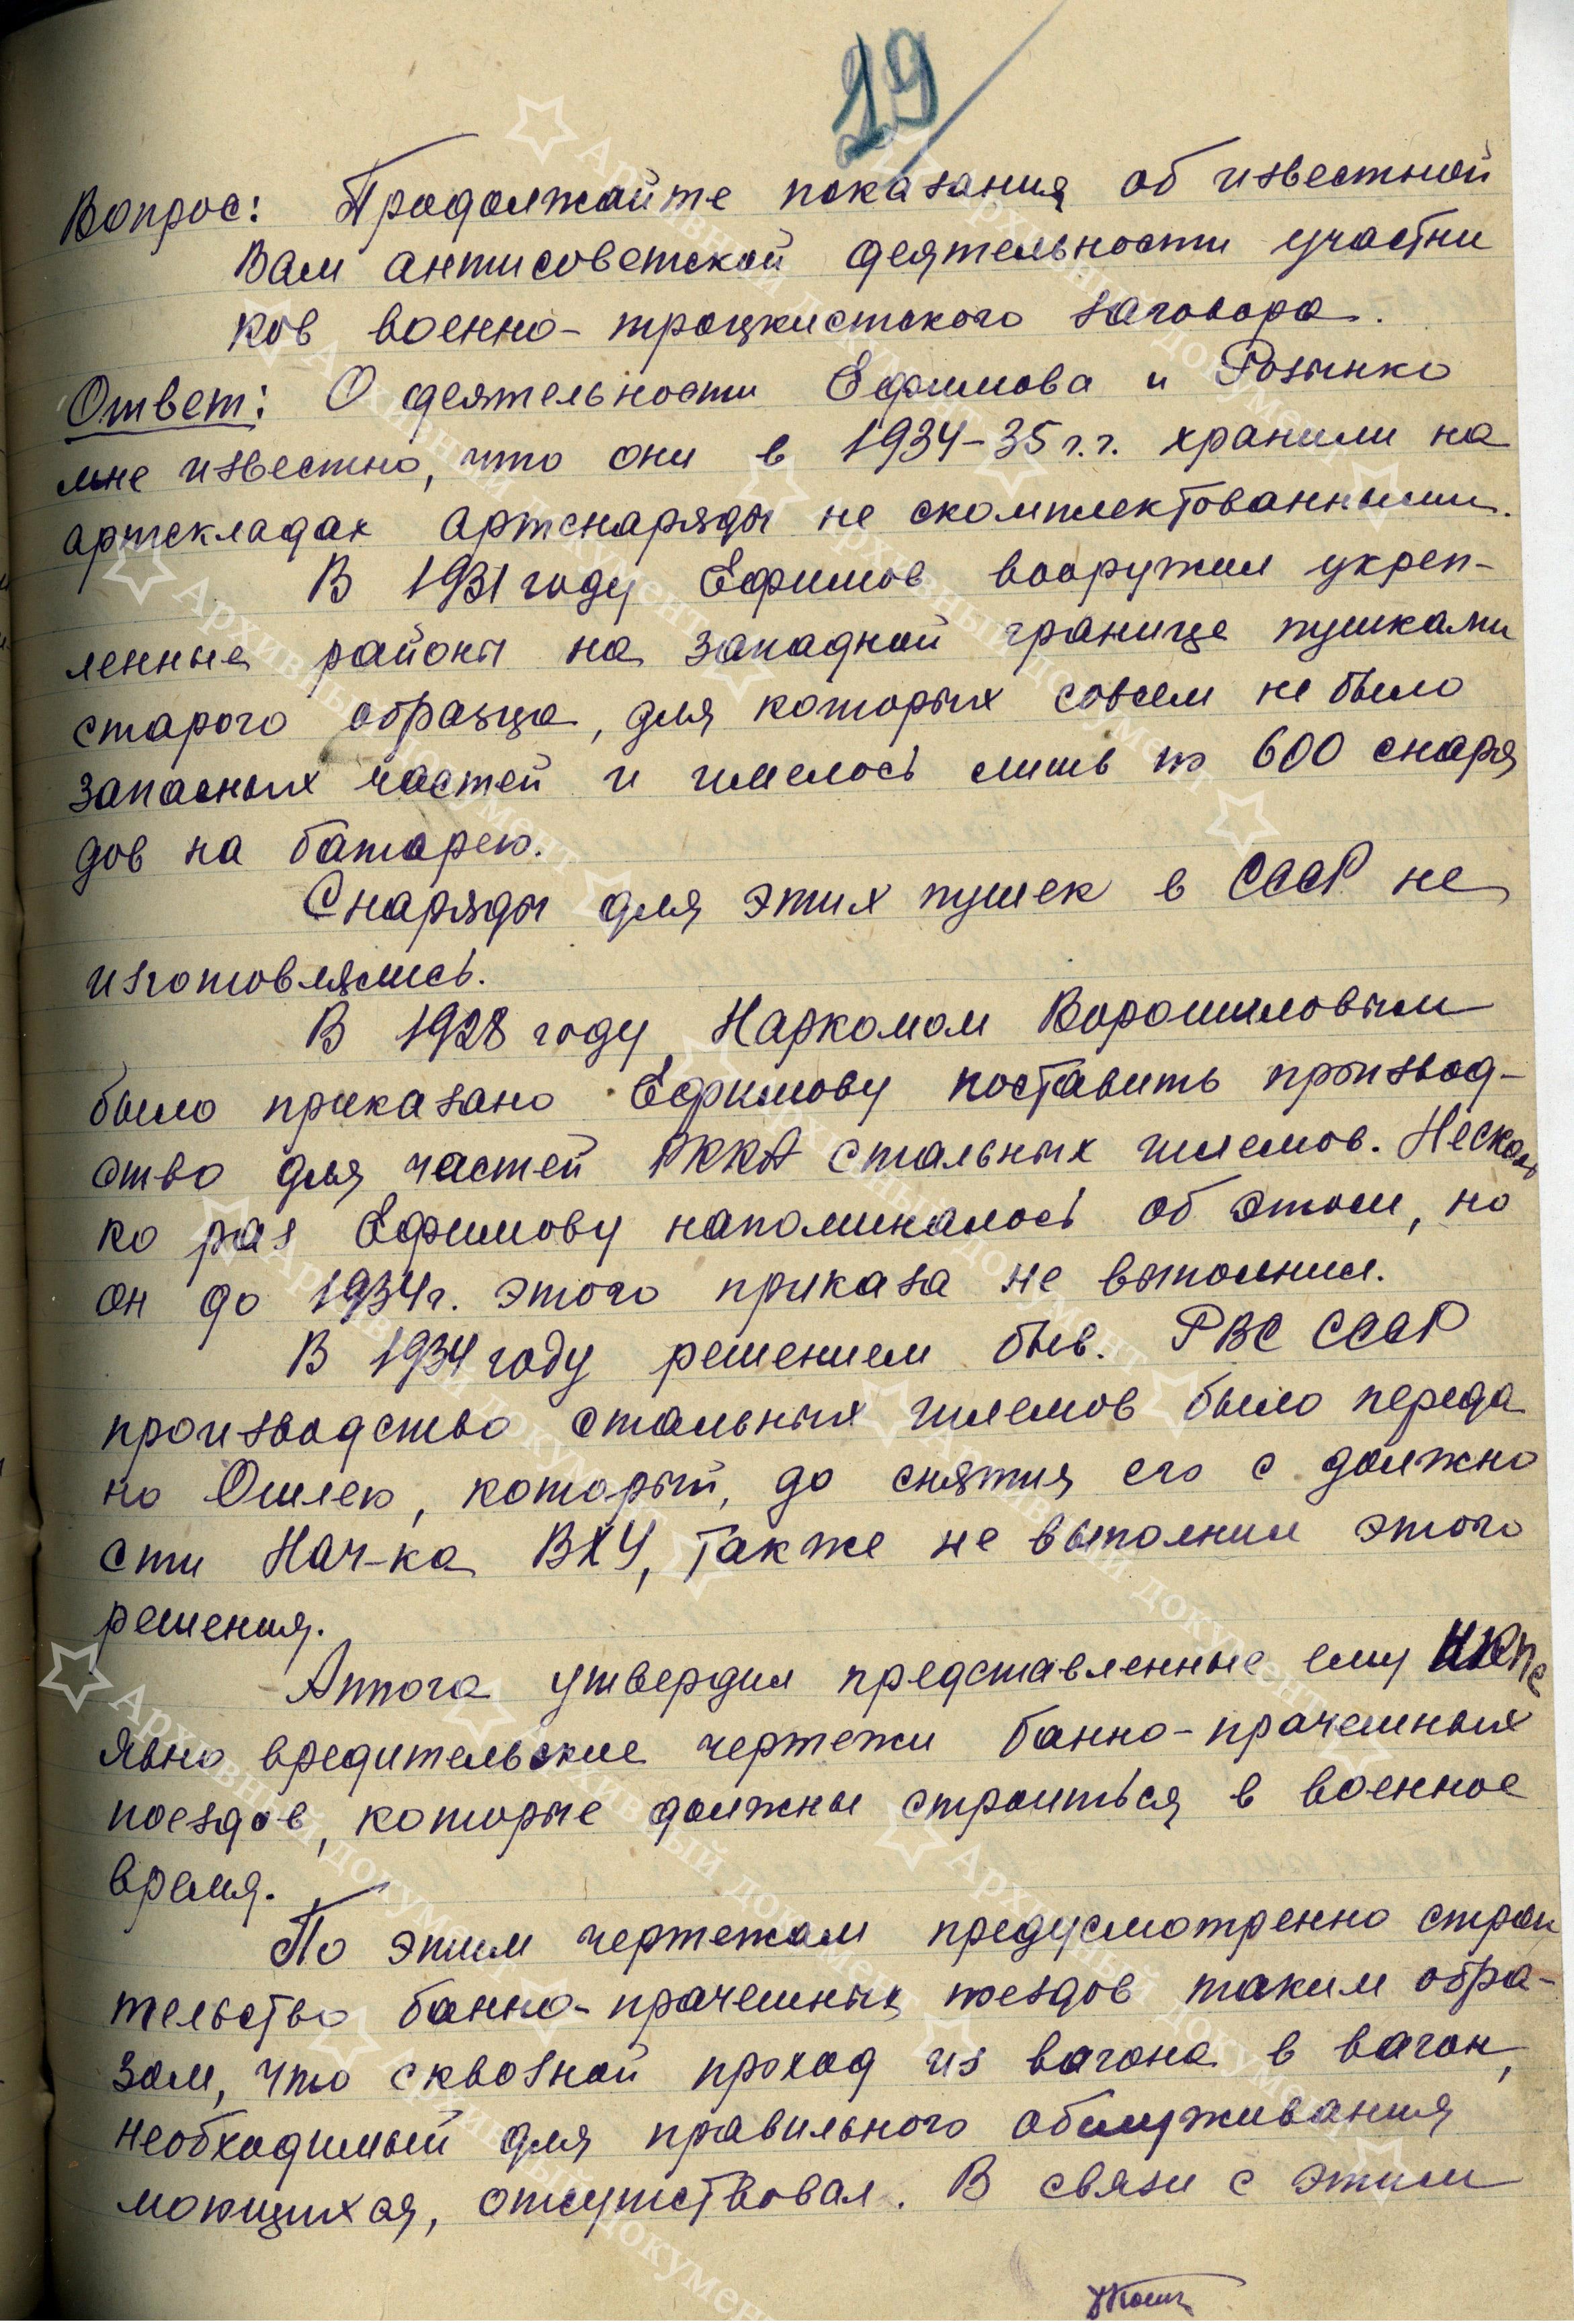 29
Вопрос: Продолжайте показания об известной
Вам антисоветской деятельности участни
ков военно-троцкистского заговора.
Ответ: О деятельности Ефимова и Розынко
мне известно, что они в 1934-35 г.г. хранили на
артскладах артснаряды не скомплектованными.
В 1931 году Ефимов вооружил укреп-
ленные районы на западной границе пушками
старого образца, для которых совсем не было
запасных частей и имелось лишь по 600 снаря
дов на батарею.
Снаряды для этих пушек в СССР не
изготовлялись.
В 1928 году Наркомом Ворошиловым
было приказано Ефимову поставить производ-
ство для частей РККА стальных шлемов. Несколь
ко раз Ефимову напоминалось об этом, но
он до 1934г. этого приказа не выполнил.
В 1934 году решением быв. РВС СССР
производство стальных шлемов было переда
но Ошлею, который, до снятия его с должно
сти Нач-ка ВХУ, также не выполнил этого
решения.
Аппога утвердил представленные ему НКПС
явно вредительские чертежи банно-прачешных
поездов, которые должны строиться в военное
время.
По этим чертежам предусмотренно строи
тельство банно-прачешных поездов таким обра-
зом, что сквозной проход из вагона в вагон,
необходимый для правильного обслуживания
моющихся, отсутствовал. В связи с этим
Архивный документ